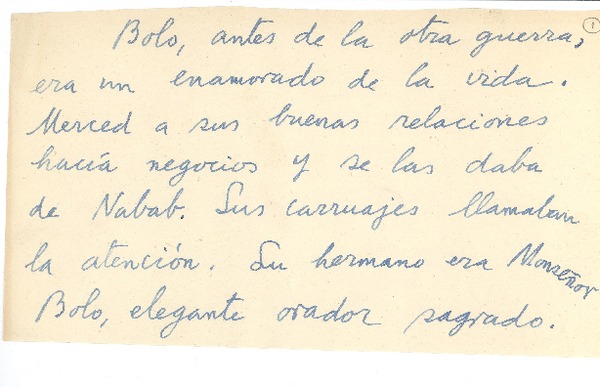 1
Bolo, antes de la otra guerra,
era un enamorado de la vida.
Merced a sus buenas relaciones
hacía negocios y se las daba
de Nabab. Sus carruajes llamaban
la atención. Su hermano era Monseñor
Bolo, elegante orador sagrado.